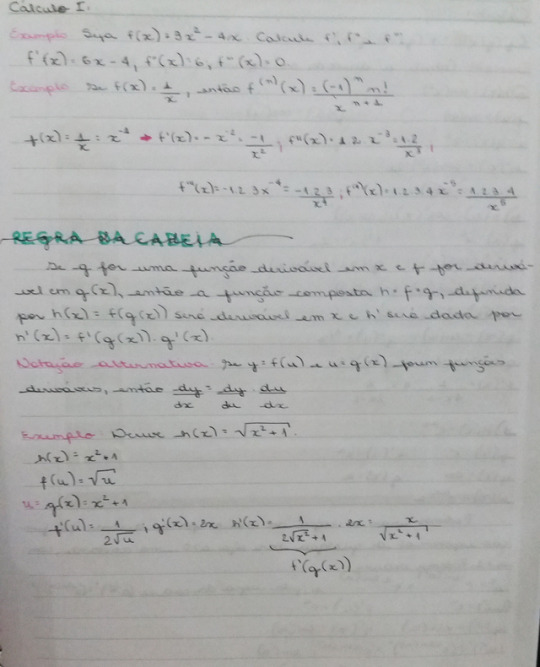 Cálculo I.
Exemplo: Seja f(x) = 3x² - 4x. Calcule f', f'' e f'''.
f'(x) = 6x - 4, f''(x) = 6, f'''(x) = 0.
Exemplo: Se f(x) = 1/x, então f⁽ⁿ⁾(x) = (-1)ⁿ n!/xⁿ⁺¹
f(x) = 1/x = x⁻¹ → f'(x) = -x⁻² = -1/x², f''(x) = 1.2 x⁻³ = 1.2/x³,
f'''(x) = -1.2.3x⁻⁴ = -1.2.3/x⁴, f⁽⁴⁾(x) = 1.2.3.4x⁻⁵ = 1.2.3.4/x⁵
REGRA DA CADEIA
Se g for uma função derivável em x e f for derivá-
vel em g(x), então a função composta h = f∘g, definida
por h(x) = f(g(x)) será derivável em x e h' será dada por
h'(x) = f'(g(x)).g'(x).
Notação alternativa: Se y = f(u) e u = g(x) forem funções
deriváveis, então dy/dx = dy/du . du/dx
Exemplo: Derive h(x) = √(x² + 1).
h(x) = x² + 1
f(u) = √u
u = g(x) = x² + 1
f'(u) = 1/(2√u), g'(x) = 2x h'(x) = 1/(2√(x² + 1)) . 2x = x/√(x² + 1)
f'(g(x))